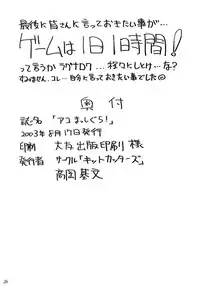 最後に皆さんに言っておきたい事が…
ゲームは1日1時間!
って言うか ラグナロク … 程々にしとけ… な?
すみません、コレ… 自分に言っておきたい事でした
奥付
誌名 「アコまっしぐら!」
2003年8月17日発行
印刷 大友出版印刷 様
発行者 サークル「キットカッターズ」
高岡基文